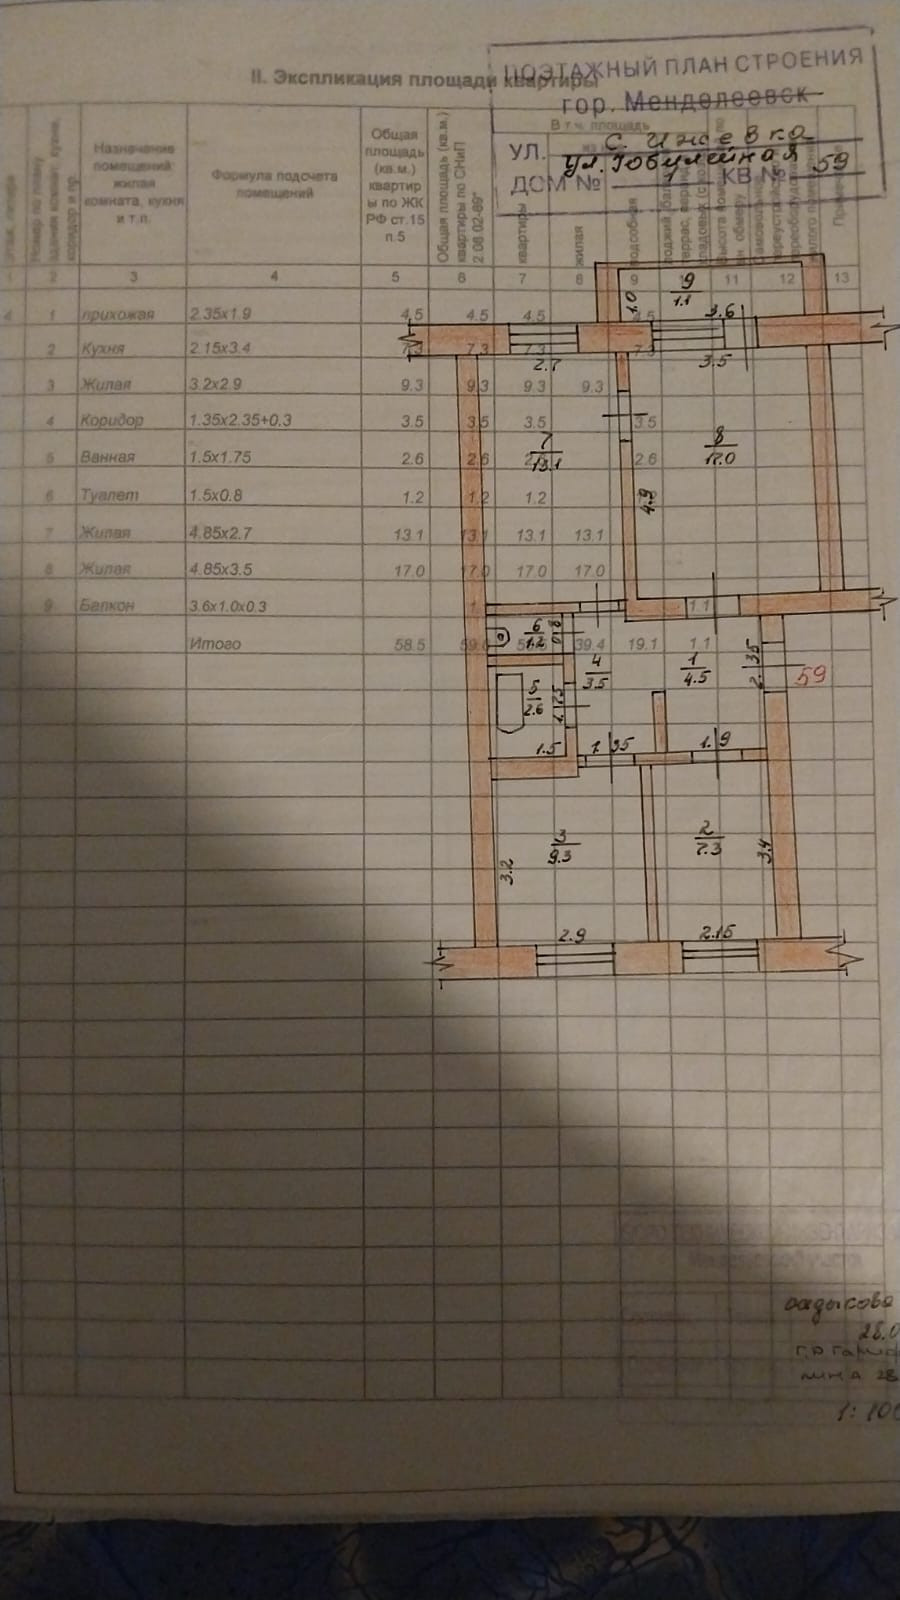 II. Экспликация площади квартиры
ПОЭТАЖНЫЙ ПЛАН СТРОЕНИЯ
гор. Менделеевск
с. Ижевка
УЛ. ул. Юбилейная
ДОМ № 1 КВ.№ 59
Назначение помещений: жилая комната, кухня и т.п.
Формула подсчета помещений
Общая площадь (кв.м.) квартиры по ЖК РФ ст.15 п.5
Общая площадь (кв.м.) квартиры по СНиП 2.08.02-89*
В т.ч. площадь
квартиры
жилая
подсобная
2 3 4 5 6 7 8 9 11 12 13
4 1 прихожая 2.35х1.9 4.5 4.5 4.5 4.5
2 Кухня 2.15х3.4 7.3 7.3 7.3 7.3
3 Жилая 3.2х2.9 9.3 9.3 9.3 9.3
4 Коридор 1.35х2.35+0.3 3.5 3.5 3.5 3.5
5 Ванная 1.5х1.75 2.6 2.6 2.6
6 Туалет 1.5х0.8 1.2 1.2 1.2
7 Жилая 4.85х2.7 13.1 13.1 13.1 13.1
8 Жилая 4.85х3.5 17.0 17.0 17.0 17.0
9 Балкон 3.6х1.0х0.3 1.1
Итого 58.5 39.4 19.1 1.1
1.0
9
1.1
3.6
2.7
3.5
7
13.1
8
17.0
4.9
6
1.2
0.8
4
3.5
1
4.5
2.35
59
5
2.6
1.75
1.5
1.35
1.9
3
9.3
2
7.3
3.2
3.4
2.9
2.15
28.0
1:100